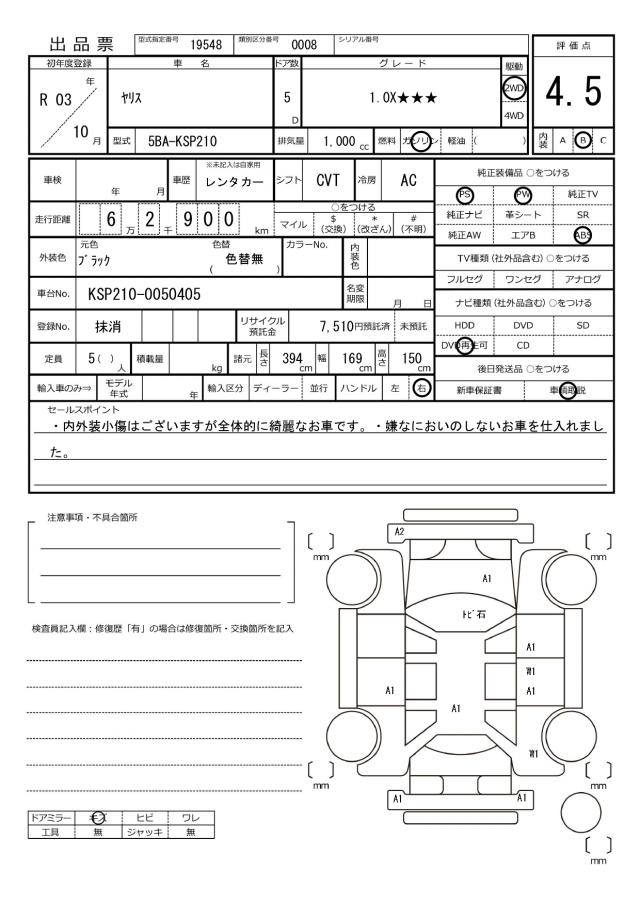 出品票
型式指定番号 19548 類別区分番号 0008 シリアル番号
評価点
4.5
内装 A B C
初年度登録 車名 ドア数 グレード 駆動
R 03 年 10 月
ヤリス
5 D
1.0X★★★
2WD
4WD
型式 5BA-KSP210 排気量 1,000 cc 燃料 ガソリン 軽油 ( )
車検 年 月 車歴 ※未記入は自家用 レンタカー シフト CVT 冷房 AC
走行距離 6 万 2 千 9 0 0 km
○をつける
マイル $(交換) *(改ざん) #(不明)
外装色 元色 ブラック 色替 ( 色替無 ) カラーNo. 内装色
車台No. KSP210-0050405 名変期限 月 日
登録No. 抹消 リサイクル預託金 7,510円預託済 未預託
定員 5 ( ) 人 積載量 kg 諸元 長さ 394 cm 幅 169 cm 高さ 150 cm
輸入車のみ⇒ モデル年式 年 輸入区分 ディーラー 並行 ハンドル 左 右
純正装備品 ○をつける
PS PW 純正TV
純正ナビ 革シート SR
純正AW エアB ABS
TV種類 (社外品含む) ○をつける
フルセグ ワンセグ アナログ
ナビ種類 (社外品含む) ○をつける
HDD DVD SD
DVD再生可 CD
後日発送品 ○をつける
新車保証書 車輌取説
セールスポイント
・内外装小傷はございますが全体的に綺麗なお車です。・嫌なにおいのしないお車を仕入れまし
た。
注意事項・不具合箇所
検査員記入欄：修復歴「有」の場合は修復箇所・交換箇所を記入
ドアミラー キズ ヒビ ワレ
工具 無 ジャッキ 無
A2
[ ] mm
[ ] mm
A1
トビ石
A1
W1
A1
A1
A1
W1
[ ] mm
[ ] mm
A1
A1
[ ] mm